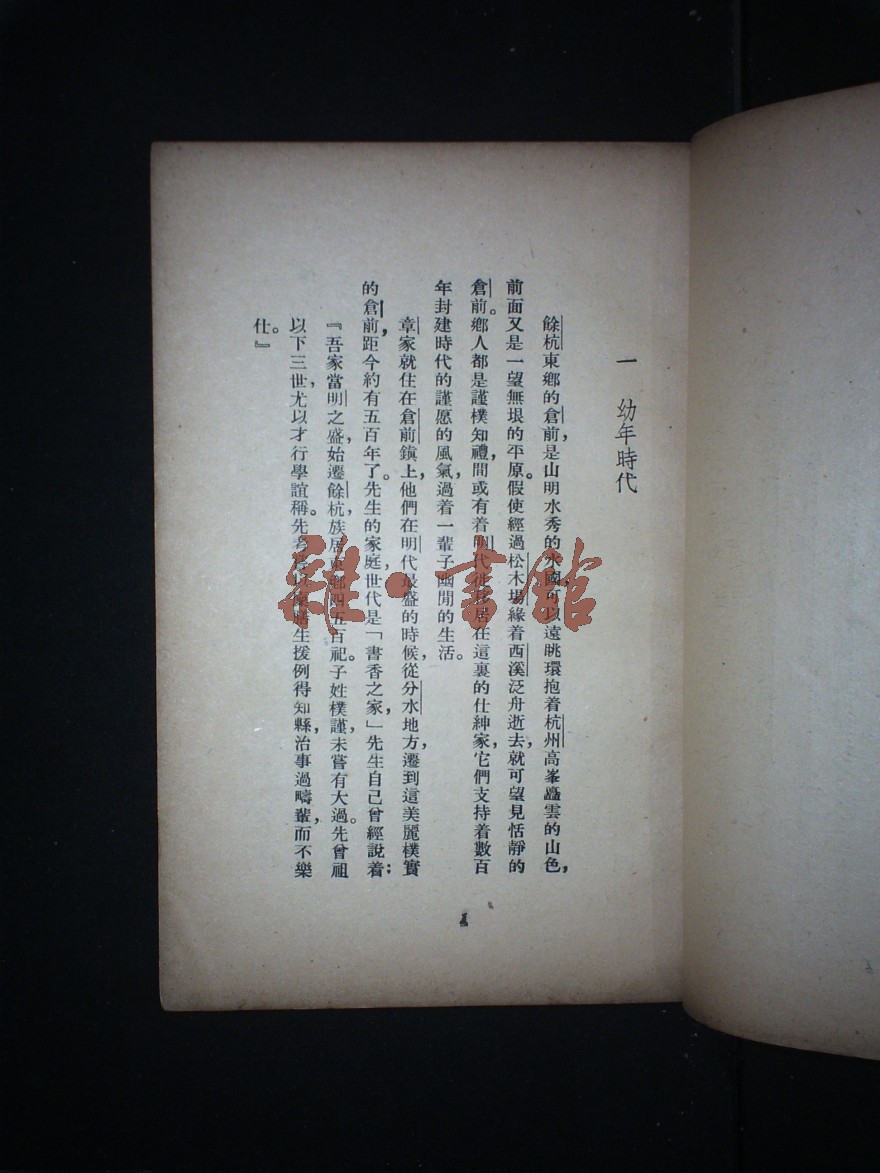 一 幼年時代
餘杭東鄉的倉前，是山明水秀的水國，可以遠眺環抱着杭州高峯矗雲的山色，
前面又是一望無垠的平原。假使經過松木場緣着西溪泛舟逝去，就可望見恬靜的
倉前。鄉人都是謹樸知禮，間或有着明代居在這裏的仕紳家，它們支持着數百
年封建時代的謹愿的風氣，過着一輩子幽閒的生活。
章家就住在倉前鎮上，他們在明代最盛的時候，從分水地方，遷到這美麗樸實
的倉前，距今約有五百年了。先生的家庭世代是「書香之家，」先生自己曾經說着：
『吾家當明之盛，始遷餘杭，族居東鄉四五百祀。子姓樸謹，未嘗有大過。先曾祖
以下三世，尤以才行學誼稱。先生援例得知縣，治事過疇輩，而不樂
仕。』
1
雜·書館